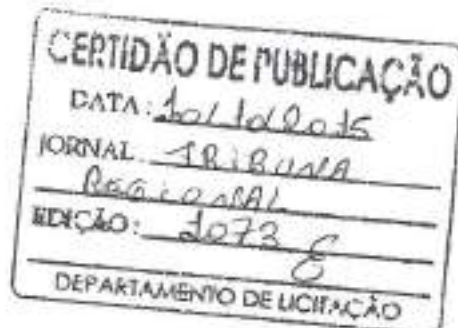 CERTIDÃO DE PUBLICAÇÃO
DATA: 10/10/2015
JORNAL TRIBUNA
REGIONAL
EDIÇÃO: 1073
DEPARTAMENTO DE LICITAÇÃO